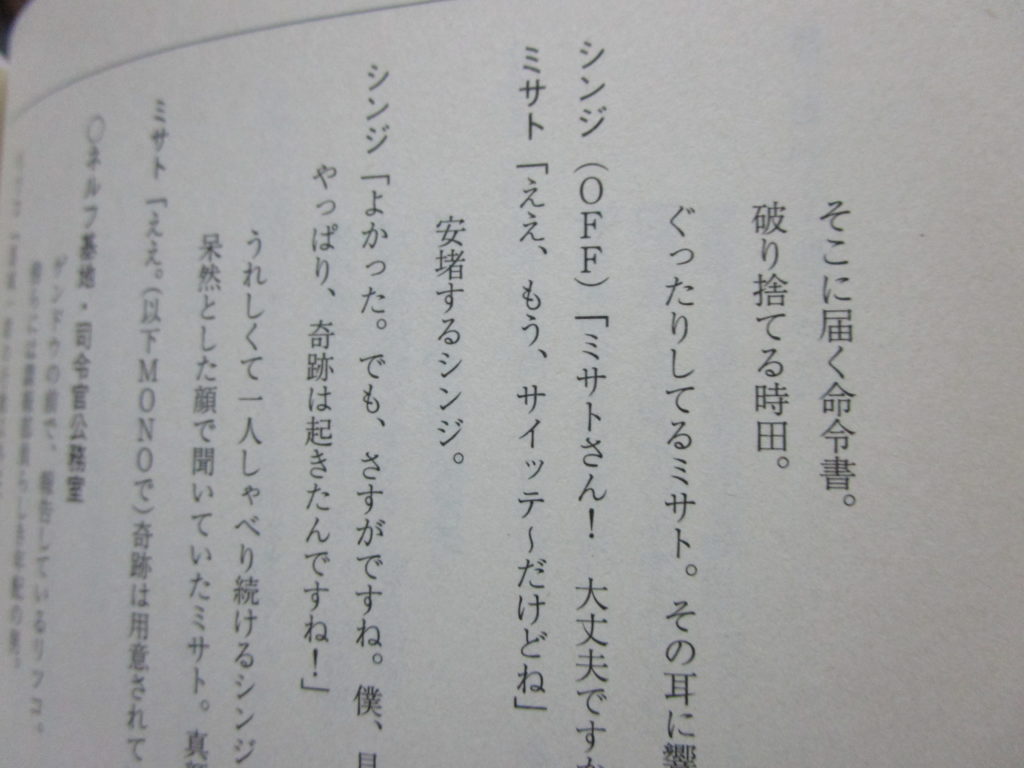 そこに届く命令書。
破り捨てる時田。
ぐったりしてるミサト。その耳に響
シンジ（ＯＦＦ）「ミサトさん！　大丈夫ですか
ミサト「ええ、もう、サイッテ～だけどね」
安堵するシンジ。
シンジ「よかった。でも、さすがですね。僕、見
やっぱり、奇跡は起きたんですね！」
うれしくて一人しゃべり続けるシンジ
呆然とした顔で聞いていたミサト。真
ミサト「ええ。（以下ＭＯＮＯで）奇跡は用意されて
〇ネルフ基地・司令官公務室
ゲンドウの前で、報告しているリツコ。